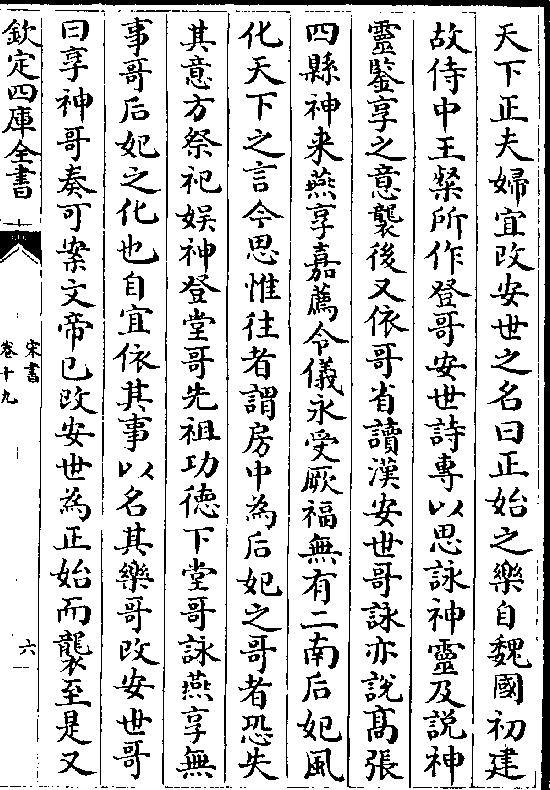 天下正夫婦宜改安世之名曰正始之樂自魏國初建
故侍中王粲所作登哥安世詩專以思詠神靈及説神
靈鑒享之意襲後又依哥省讀漢安世哥詠亦說髙張
四縣神来燕享嘉薦令儀永受厥福無有二南后妃風
化天下之言今思惟往者謂房中為后妃之哥者恐失
其意方祭祀娱神登堂哥先祖功徳下堂哥詠燕享無
事哥后妃之化也自宜依其事以名其樂哥改安世哥
曰享神哥奏可案文帝已改安世為正始而襲至是又
欽定四庫全書
宋書
卷十九
六